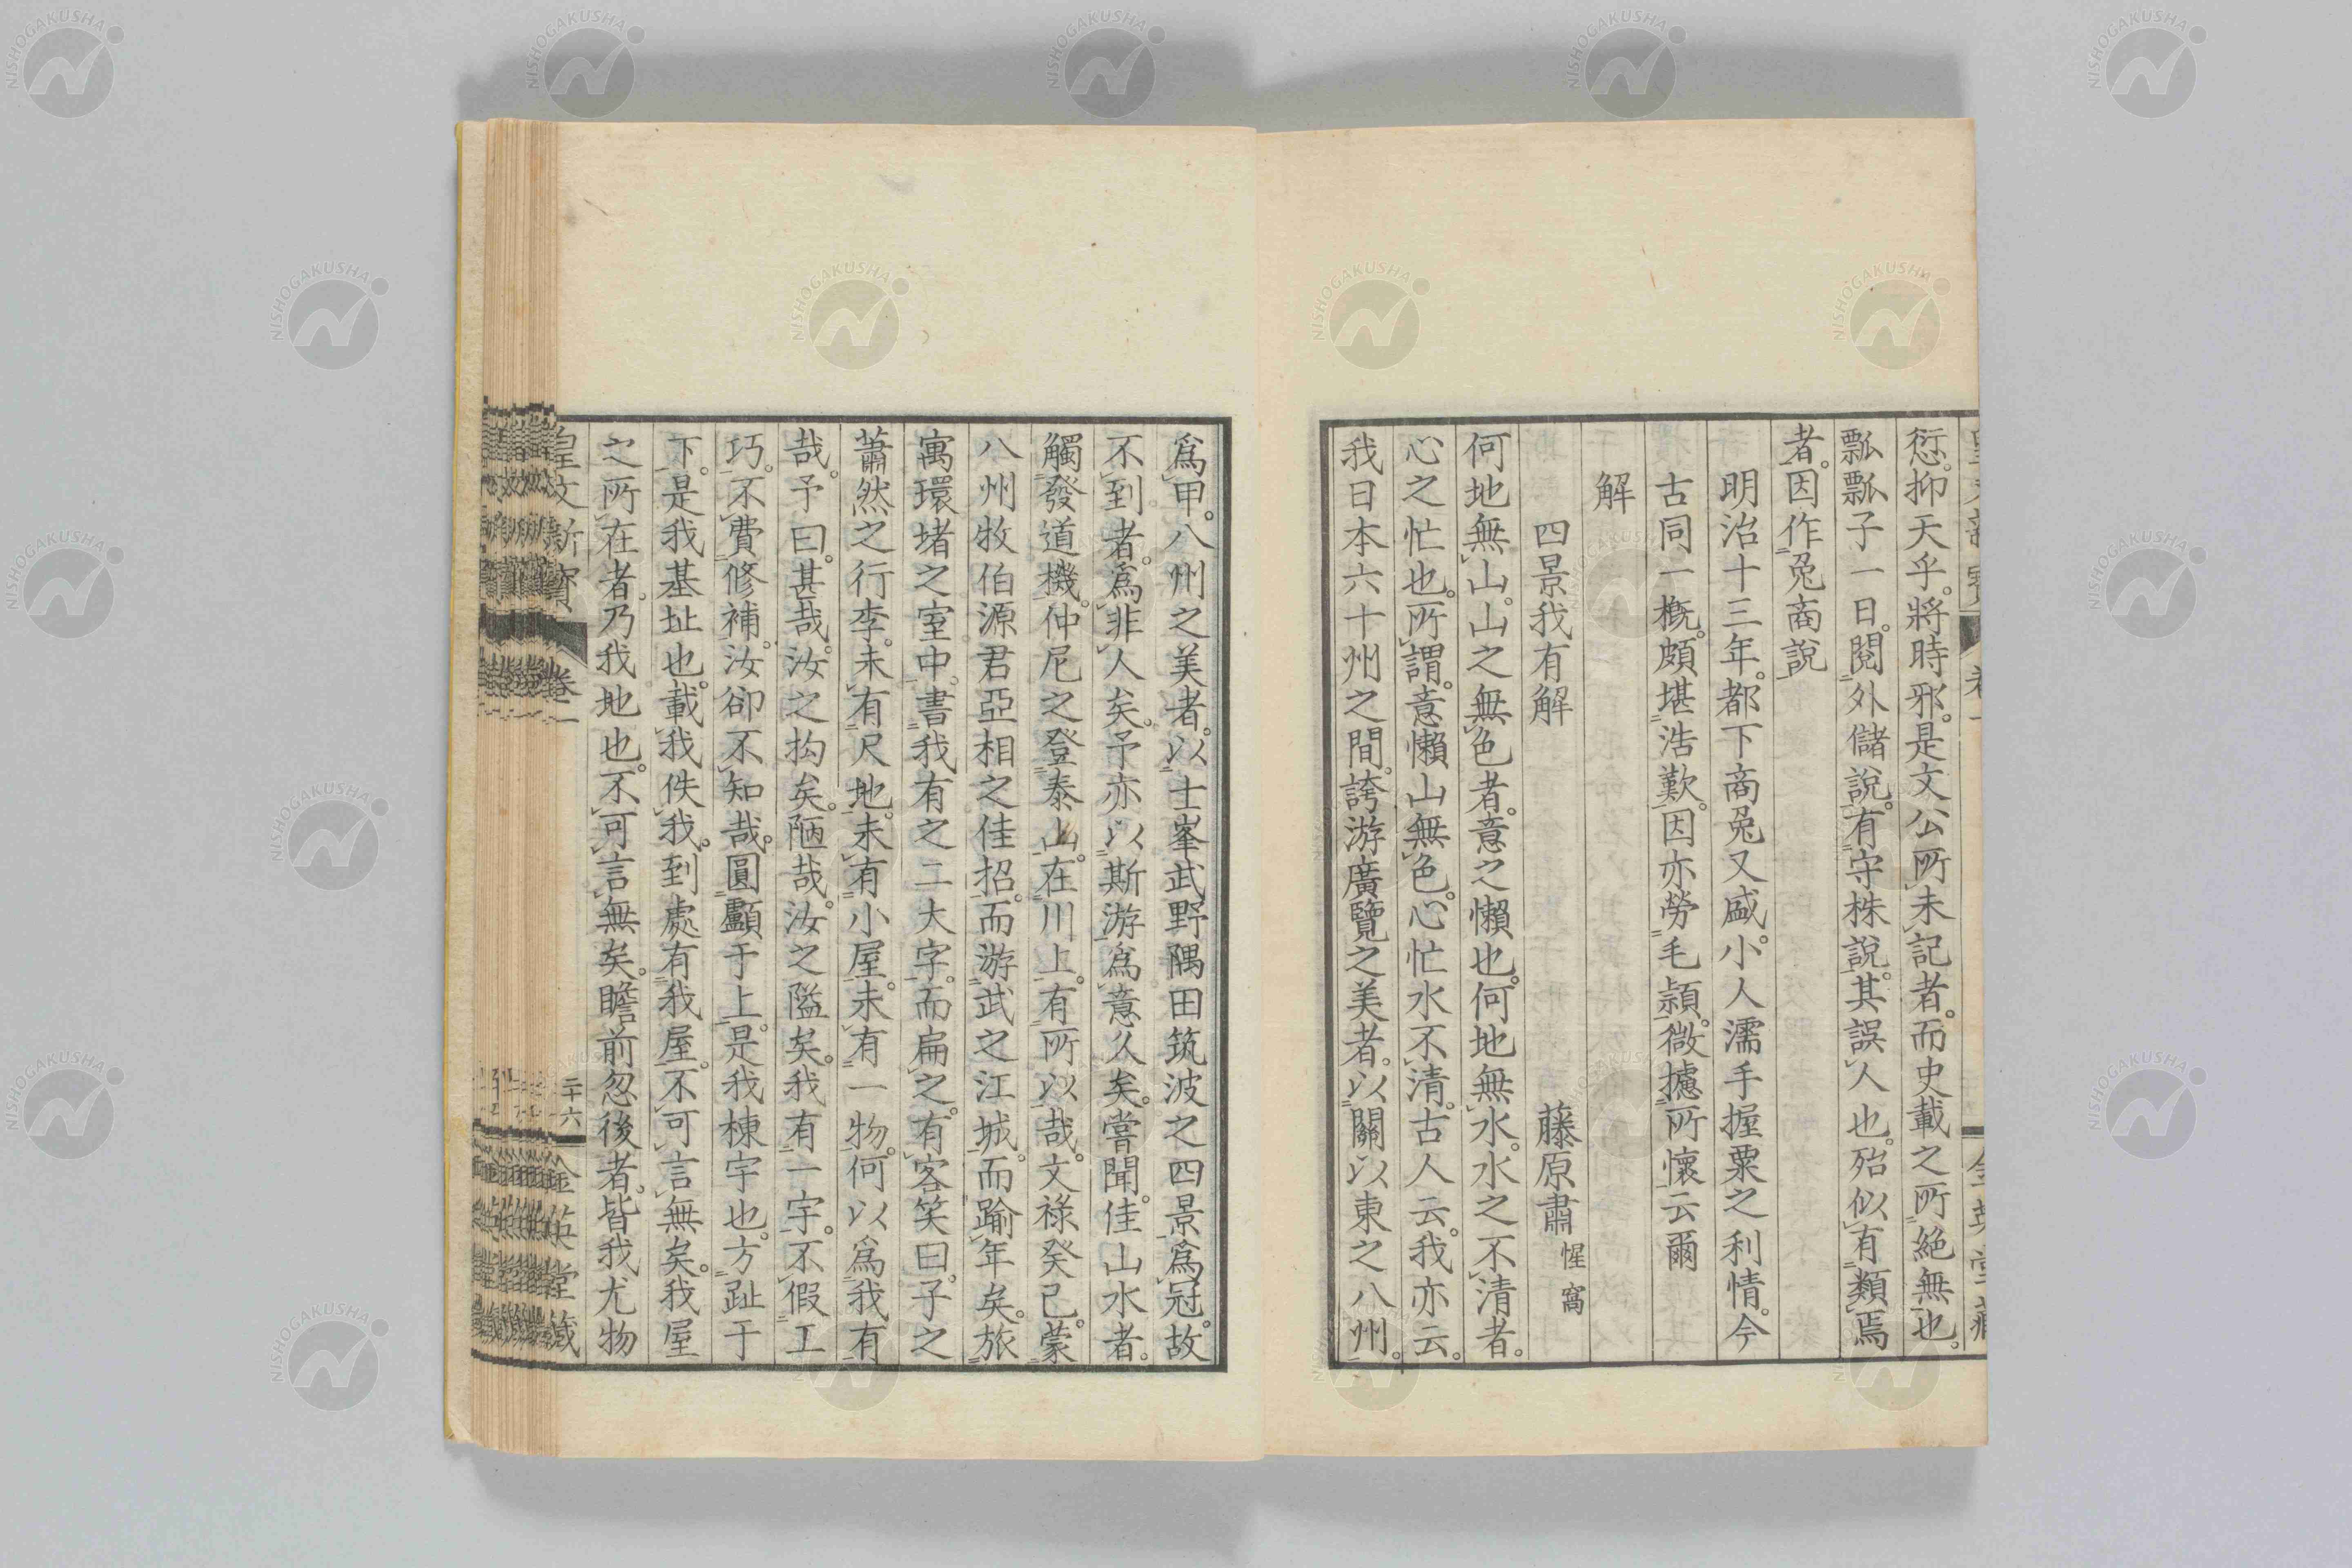 愆。抑天乎。將時邪。是文公所未記者。而史載之所絕無也。
瓢瓢子一日。閱外儲說。有守株說。其誤人也。殆似有類焉
者。因作兔商說
明治十三年。都下商兔又盛。小人濡手握粟之利情。今
古同一概。頗堪浩歎。因亦勞毛頴。微攄所懷云爾
解
四景我有解 藤原肅惺窩
何地無山。山之無色者。意之懶也。何地無水。水之不清者。
心之忙也。所謂。意懶山無色。心忙水不清。古人云。我亦云。
我日本六十州之間。誇游廣覽之美者。以關以東之八州。
爲甲。八州之美者。以士峯武野隅田筑波之四景爲冠。故
不到者。爲非人矣。予亦以斯游爲意久矣。嘗聞。佳山水者。
觸發道機。仲尼之登泰山。在川上。有所以哉。文祿癸己。蒙
八州牧伯源君亞相之佳招。而游武之江城。而踰年矣。旅
寓環堵之室中。書我有之二大字。而扁之。有客笑曰。子之
蕭然之行李。未有尺地。未有小屋。未有一物。何以爲我有
哉。予曰。甚哉。汝之拘矣。陋哉。汝之隘矣。我有一宇。不假工
巧。不費修補。汝卻不知哉。圓顱于上。是我棟宇也。方趾于
下。是我基址也。載我佚我。到處有我屋。不可言無矣。我屋
之所在者。乃我地也。不可言無矣。瞻前忽後者。皆我尤物
皇文新寶 卷一 二十六 金英堂藏
NISHOGAKUSHA